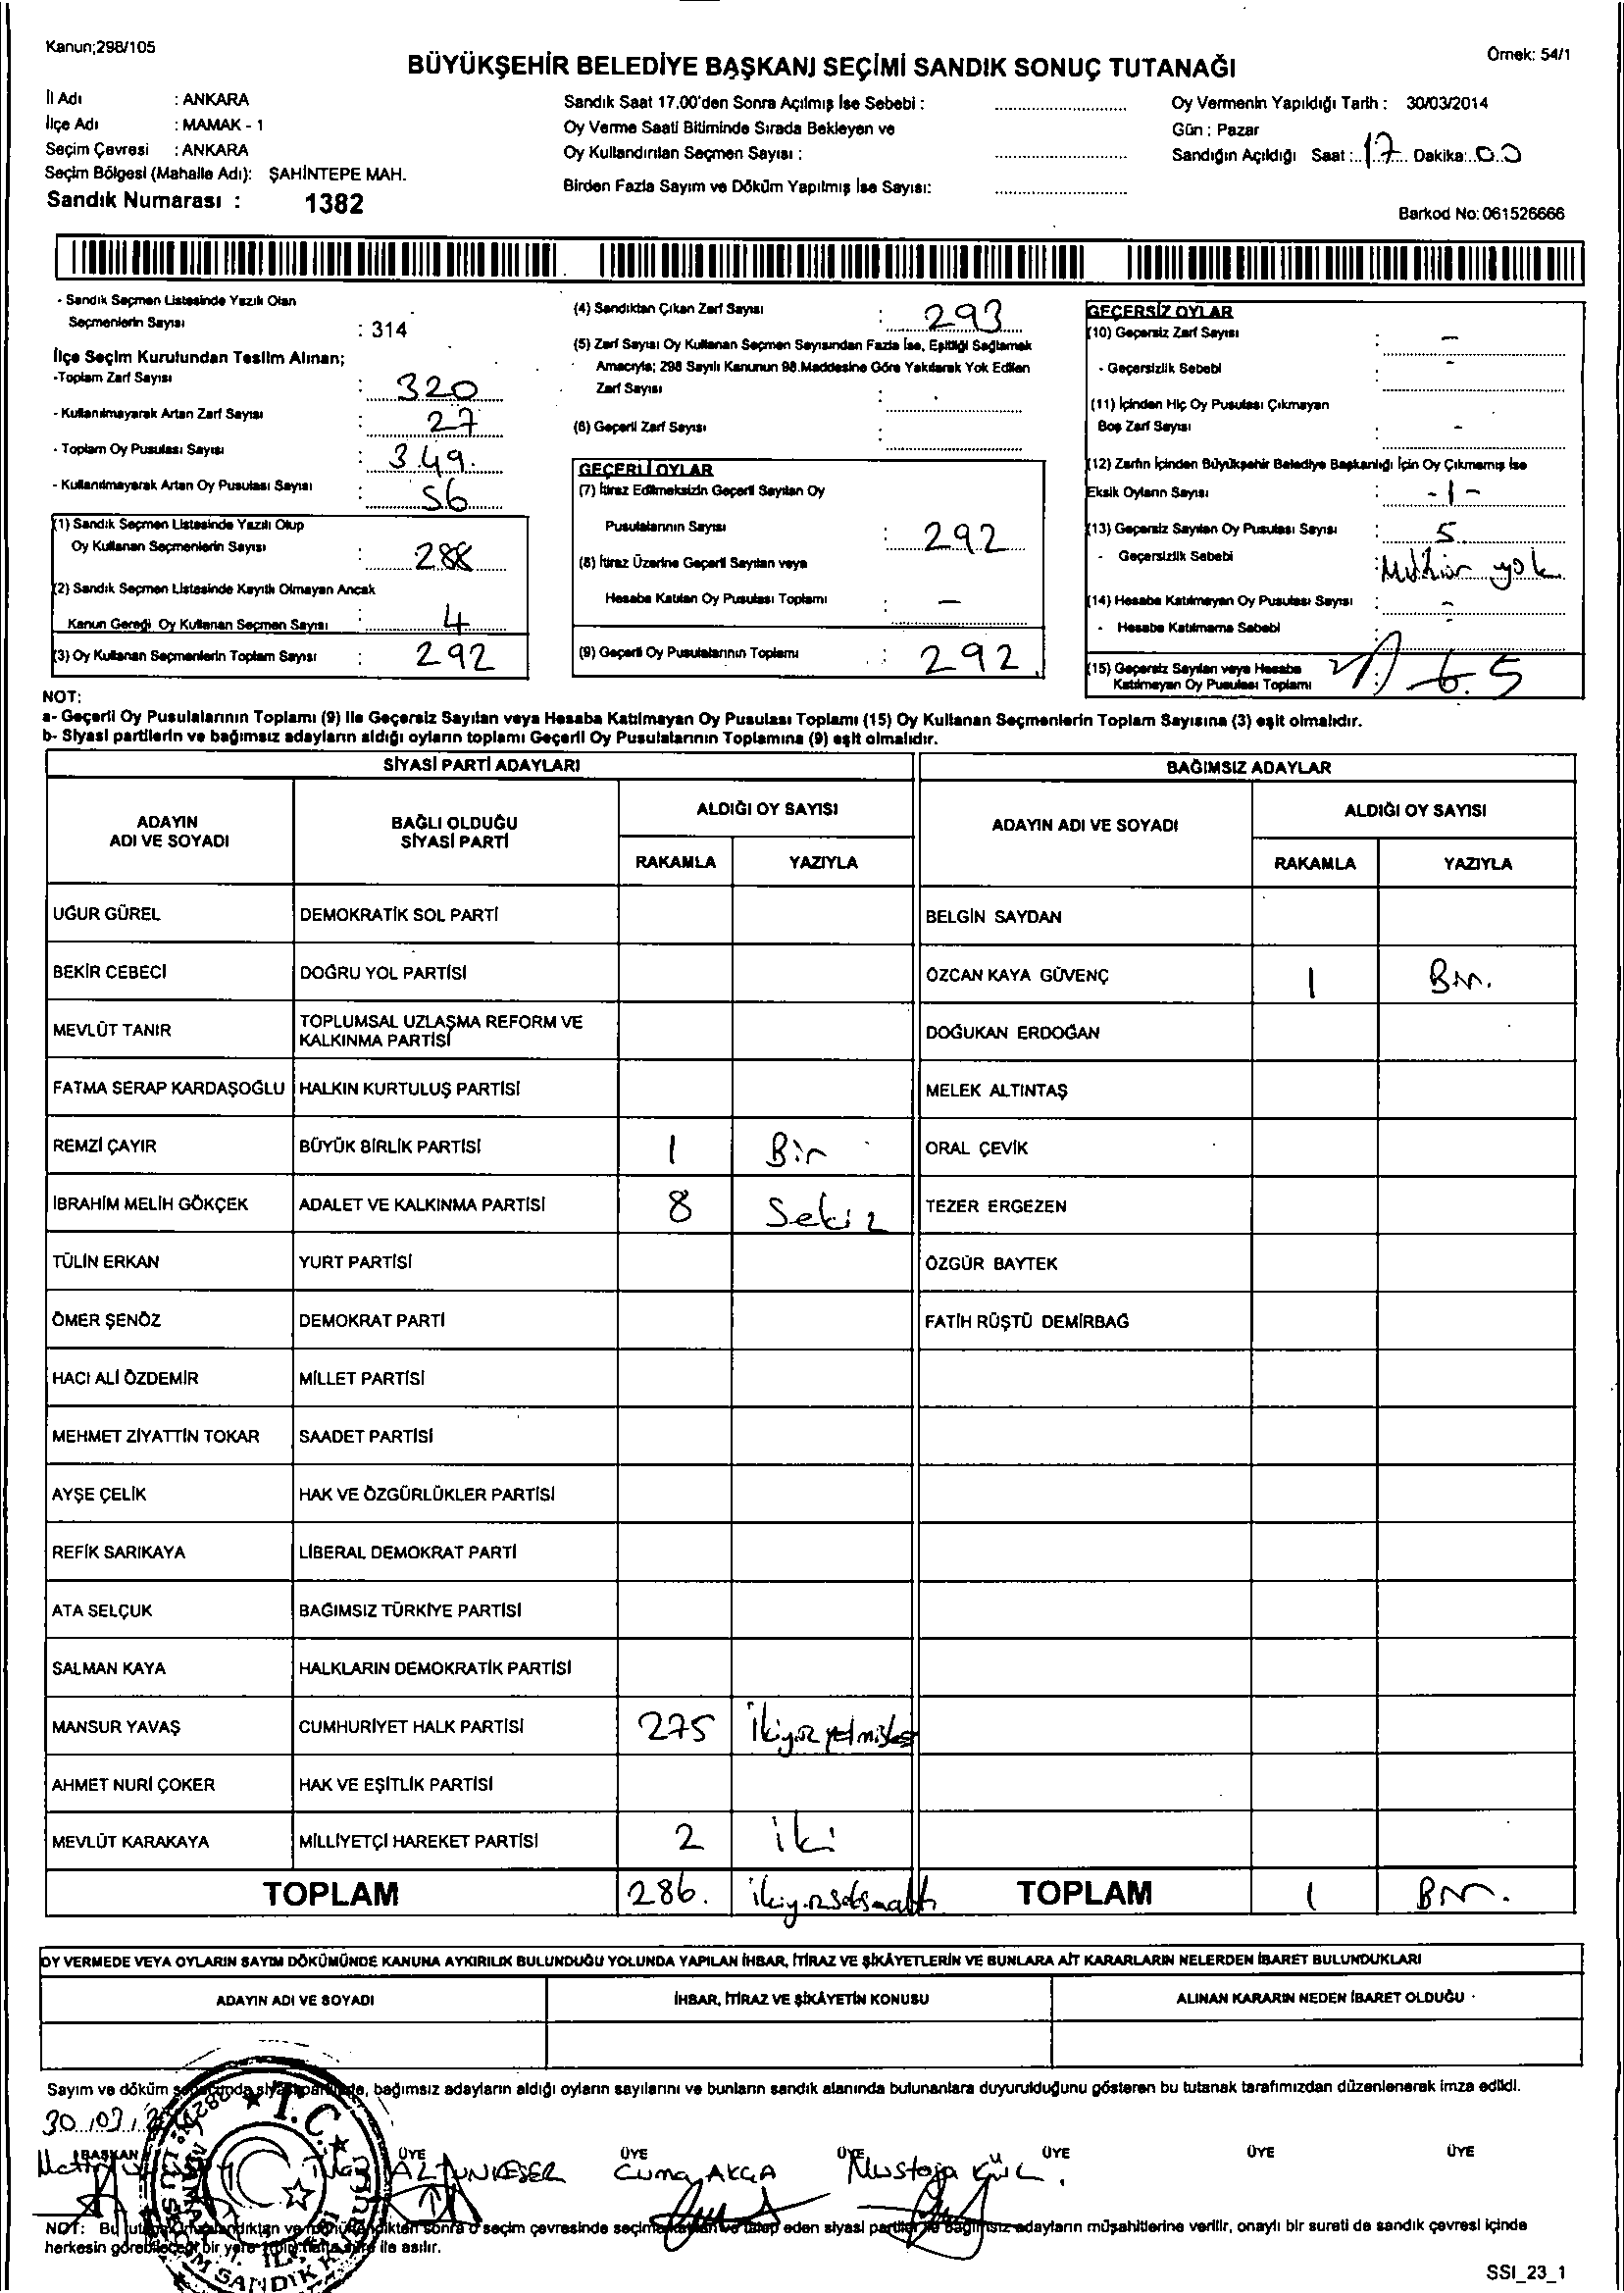 Kanun;298/105
Örnek: 54/1
BÜYÜKŞEHİR BELEDİYE BAŞKANI SEÇİMİ SANDIK SONUÇ TUTANAĞI
İl Adı : ANKARA
İlçe Adı : MAMAK - 1
Seçim Çevresi : ANKARA
Seçim Bölgesi (Mahalle Adı): ŞAHİNTEPE MAH.
Sandık Numarası : 1382
Sandık Saat 17.00'den Sonra Açılmış İse Sebebi :
Oy Verme Saati Bitiminde Sırada Bekleyen ve
Oy Kullandırılan Seçmen Sayısı :
Birden Fazla Sayım ve Döküm Yapılmış İse Sayısı:
Oy Vermenin Yapıldığı Tarih : 30/03/2014
Gün : Pazar
Sandığın Açıldığı Saat : 17 Dakika: 00
Barkod No: 061526666
- Sandık Seçmen Listesinde Yazılı Olan
Seçmenlerin Sayısı : 314
İlçe Seçim Kurulundan Teslim Alınan;
-Toplam Zarf Sayısı : 320
- Kullanılmayarak Artan Zarf Sayısı : 27
- Toplam Oy Pusulası Sayısı : 349.
- Kullanılmayarak Artan Oy Pusulası Sayısı : 56
(1) Sandık Seçmen Listesinde Yazılı Olup
Oy Kullanan Seçmenlerin Sayısı : 288
(2) Sandık Seçmen Listesinde Kayıtlı Olmayan Ancak
Kanun Gereği Oy Kullanan Seçmen Sayısı : 4
(3) Oy Kullanan Seçmenlerin Toplam Sayısı : 292
(4) Sandıktan Çıkan Zarf Sayısı : 293
(5) Zarf Sayısı Oy Kullanan Seçmen Sayısından Fazla İse, Eşitliği Sağlamak
Amacıyla; 298 Sayılı Kanunun 98.Maddesine Göre Yakılarak Yok Edilen
Zarf Sayısı :
(6) Geçerli Zarf Sayısı :
GEÇERLİ OYLAR
(7) İtiraz Edilmeksizin Geçerli Sayılan Oy
Pusulalarının Sayısı : 292
(8) İtiraz Üzerine Geçerli Sayılan veya
Hesaba Katılan Oy Pusulası Toplamı : -
(9) Geçerli Oy Pusulalarının Toplamı : 292
GEÇERSİZ OYLAR
(10) Geçersiz Zarf Sayısı : -
- Geçersizlik Sebebi : -
(11) İçinden Hiç Oy Pusulası Çıkmayan
Boş Zarf Sayısı : -
(12) Zarfın İçinden Büyükşehir Belediye Başkanlığı İçin Oy Çıkmamış İse
Eksik Oyların Sayısı : -1-
(13) Geçersiz Sayılan Oy Pusulası Sayısı : 5
- Geçersizlik Sebebi : Mühür yok
(14) Hesaba Katılmayan Oy Pusulası Sayısı : -
- Hesaba Katılmama Sebebi :
(15) Geçersiz Sayılan veya Hesaba
Katılmayan Oy Pusulası Toplamı : 6. 5
NOT:
a- Geçerli Oy Pusulalarının Toplamı (9) ile Geçersiz Sayılan veya Hesaba Katılmayan Oy Pusulası Toplamı (15) Oy Kullanan Seçmenlerin Toplam Sayısına (3) eşit olmalıdır.
b- Siyasi partilerin ve bağımsız adayların aldığı oyların toplamı Geçerli Oy Pusulalarının Toplamına (9) eşit olmalıdır.
SİYASİ PARTİ ADAYLARI
ADAYIN ADI VE SOYADI BAĞLI OLDUĞU SİYASİ PARTİ ALDIĞI OY SAYISI
RAKAMLA YAZIYLA
UĞUR GÜREL DEMOKRATİK SOL PARTİ
BEKİR CEBECİ DOĞRU YOL PARTİSİ
MEVLÜT TANIR TOPLUMSAL UZLAŞMA REFORM VE KALKINMA PARTİSİ
FATMA SERAP KARDAŞOĞLU HALKIN KURTULUŞ PARTİSİ
REMZİ ÇAYIR BÜYÜK BİRLİK PARTİSİ 1 Bir
İBRAHİM MELİH GÖKÇEK ADALET VE KALKINMA PARTİSİ 8 Sekiz
TÜLİN ERKAN YURT PARTİSİ
ÖMER ŞENÖZ DEMOKRAT PARTİ
HACI ALİ ÖZDEMİR MİLLET PARTİSİ
MEHMET ZİYATTİN TOKAR SAADET PARTİSİ
AYŞE ÇELİK HAK VE ÖZGÜRLÜKLER PARTİSİ
REFİK SARIKAYA LİBERAL DEMOKRAT PARTİ
ATA SELÇUK BAĞIMSIZ TÜRKİYE PARTİSİ
SALMAN KAYA HALKLARIN DEMOKRATİK PARTİSİ
MANSUR YAVAŞ CUMHURİYET HALK PARTİSİ 275 ikiyüz yetmişbeş
AHMET NURİ ÇOKER HAK VE EŞİTLİK PARTİSİ
MEVLÜT KARAKAYA MİLLİYETÇİ HAREKET PARTİSİ 2 iki
TOPLAM 286. ikiyüzseksenaltı
BAĞIMSIZ ADAYLAR
ADAYIN ADI VE SOYADI ALDIĞI OY SAYISI
RAKAMLA YAZIYLA
BELGİN SAYDAN
ÖZCAN KAYA GÜVENÇ 1 Bir.
DOĞUKAN ERDOĞAN
MELEK ALTINTAŞ
ORAL ÇEVİK
TEZER ERGEZEN
ÖZGÜR BAYTEK
FATİH RÜŞTÜ DEMİRBAĞ
TOPLAM 1 Bir.
OY VERMEDE VEYA OYLARIN SAYIM DÖKÜMÜNDE KANUNA AYKIRILIK BULUNDUĞU YOLUNDA YAPILAN İHBAR, İTİRAZ VE ŞİKÂYETLERİN VE BUNLARA AİT KARARLARIN NELERDEN İBARET BULUNDUKLARI
ADAYIN ADI VE SOYADI İHBAR, İTİRAZ VE ŞİKÂYETİN KONUSU ALINAN KARARIN NEDEN İBARET OLDUĞU
Sayım ve döküm siyasi bağımsız adayların aldığı oyların sayılarını ve bunların sandık alanında bulunanlara duyurulduğunu gösteren bu tutanak tarafımızdan düzenlenerek imza edildi.
30.03.
BAŞKAN ÜYE ÜYE ÜYE ÜYE ÜYE ÜYE
ALTUNKESER Cuma AKÇA Mustafa
T.C.
NOT: Bu sonra o seçim çevresinde eden siyasi adayların müşahitlerine verilir, onaylı bir sureti de sandık çevresi içinde
herkesin görebileceği bir yere ile asılır.
SSI_23_1